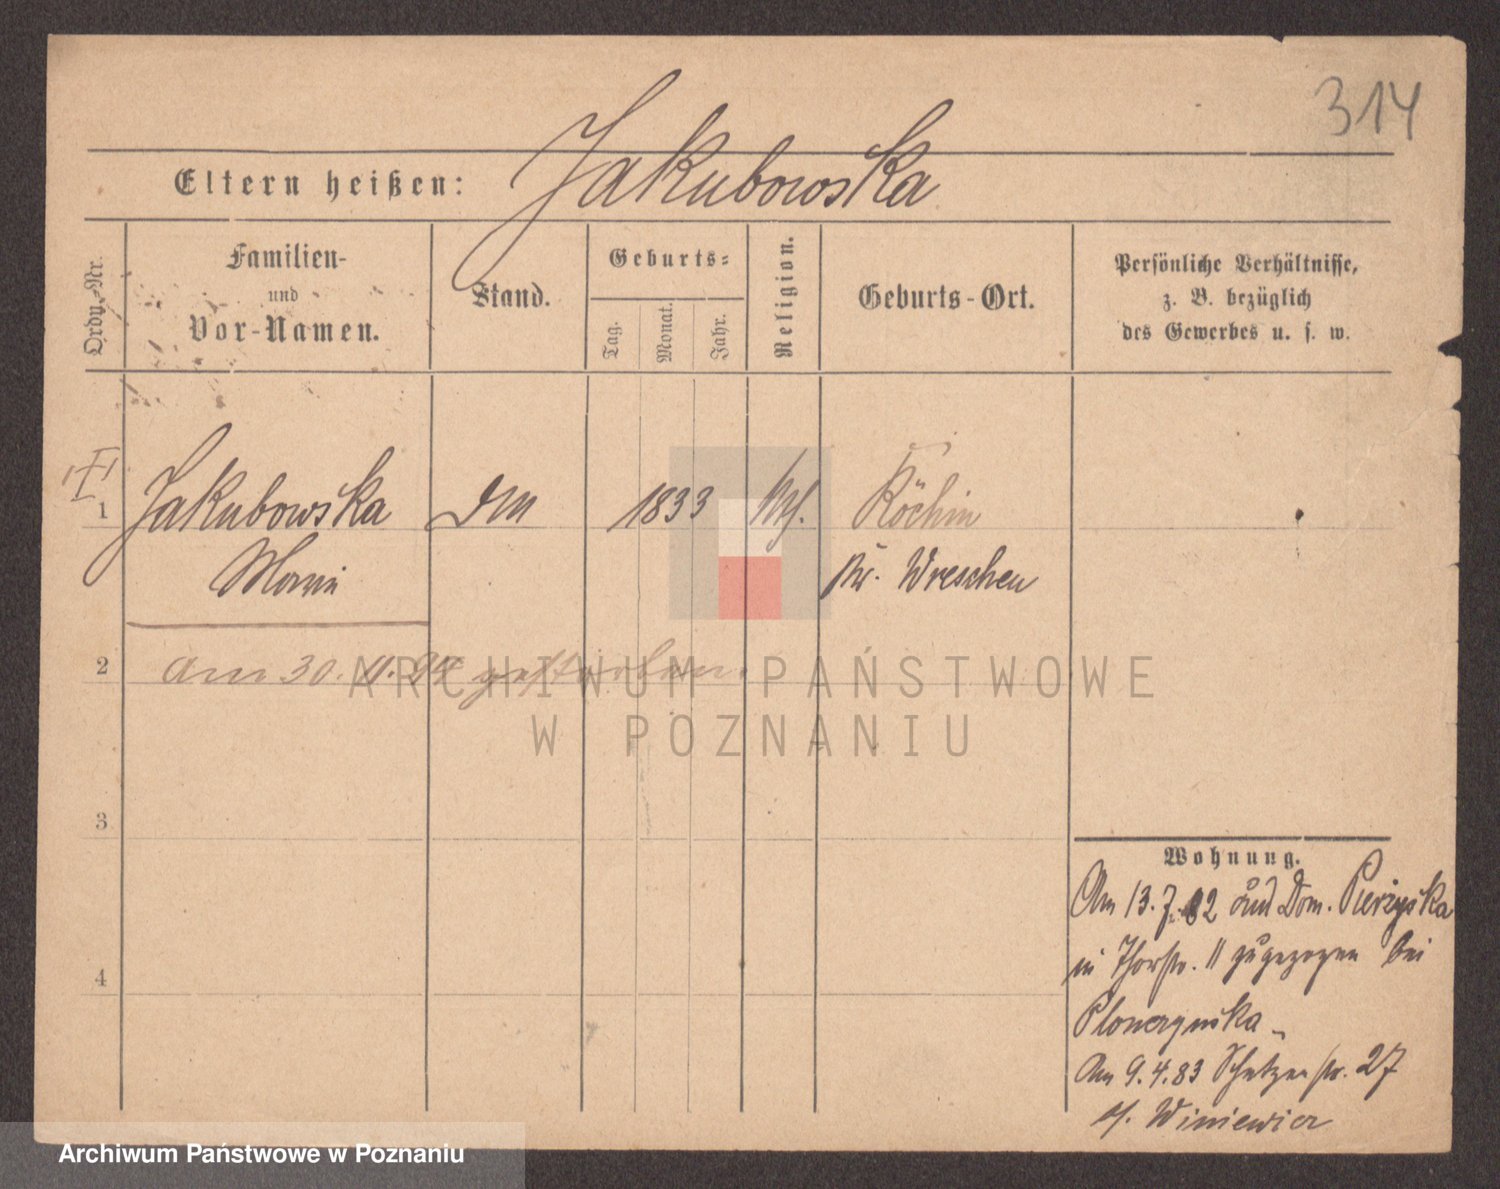 314
Eltern heißen: Jakubowska
Ordn.-Nr.
Familien-
und
Vor-Namen.
Stand.
Geburts-
Tag.
Monat.
Jahr.
Religion.
Geburts-Ort.
Persönliche Verhältnisse,
z. B. bezüglich
des Gewerbes u. s. w.
1 Jakubowska 1833 Köchin
Kr. Wreschen
2 am 30. 11. gestorben.
ARCHIWUM PAŃSTWOWE
W POZNANIU
3
Wohnung.
Am 13. 7. 82 Dom.
in Thorstr. 11 zugezogen bei
4
Am 9.4.83 Schützenstr. 27
Archiwum Państwowe w Poznaniu